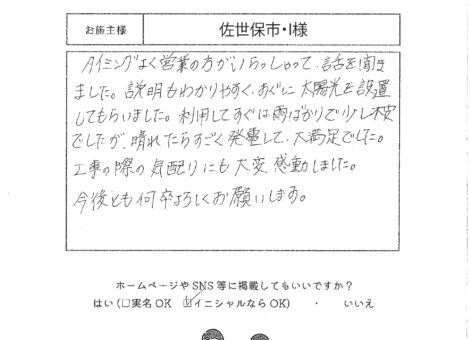 お施主様 佐世保市・I様
タイミングよく営業の方がいらっしゃって、話を聞き
ました。説明もわかりやすく、すぐに太陽光を設置
してもらいました。利用してすぐは雨ばかりで少し不安
でしたが、晴れたらすごく発電して、大満足でした。
工事の際の気配りにも大変感動しました。
今後とも何卒よろしくお願いします。
ホームページやSNS等に掲載してもいいですか？
はい（□実名OK ☑イニシャルならOK）・いいえ